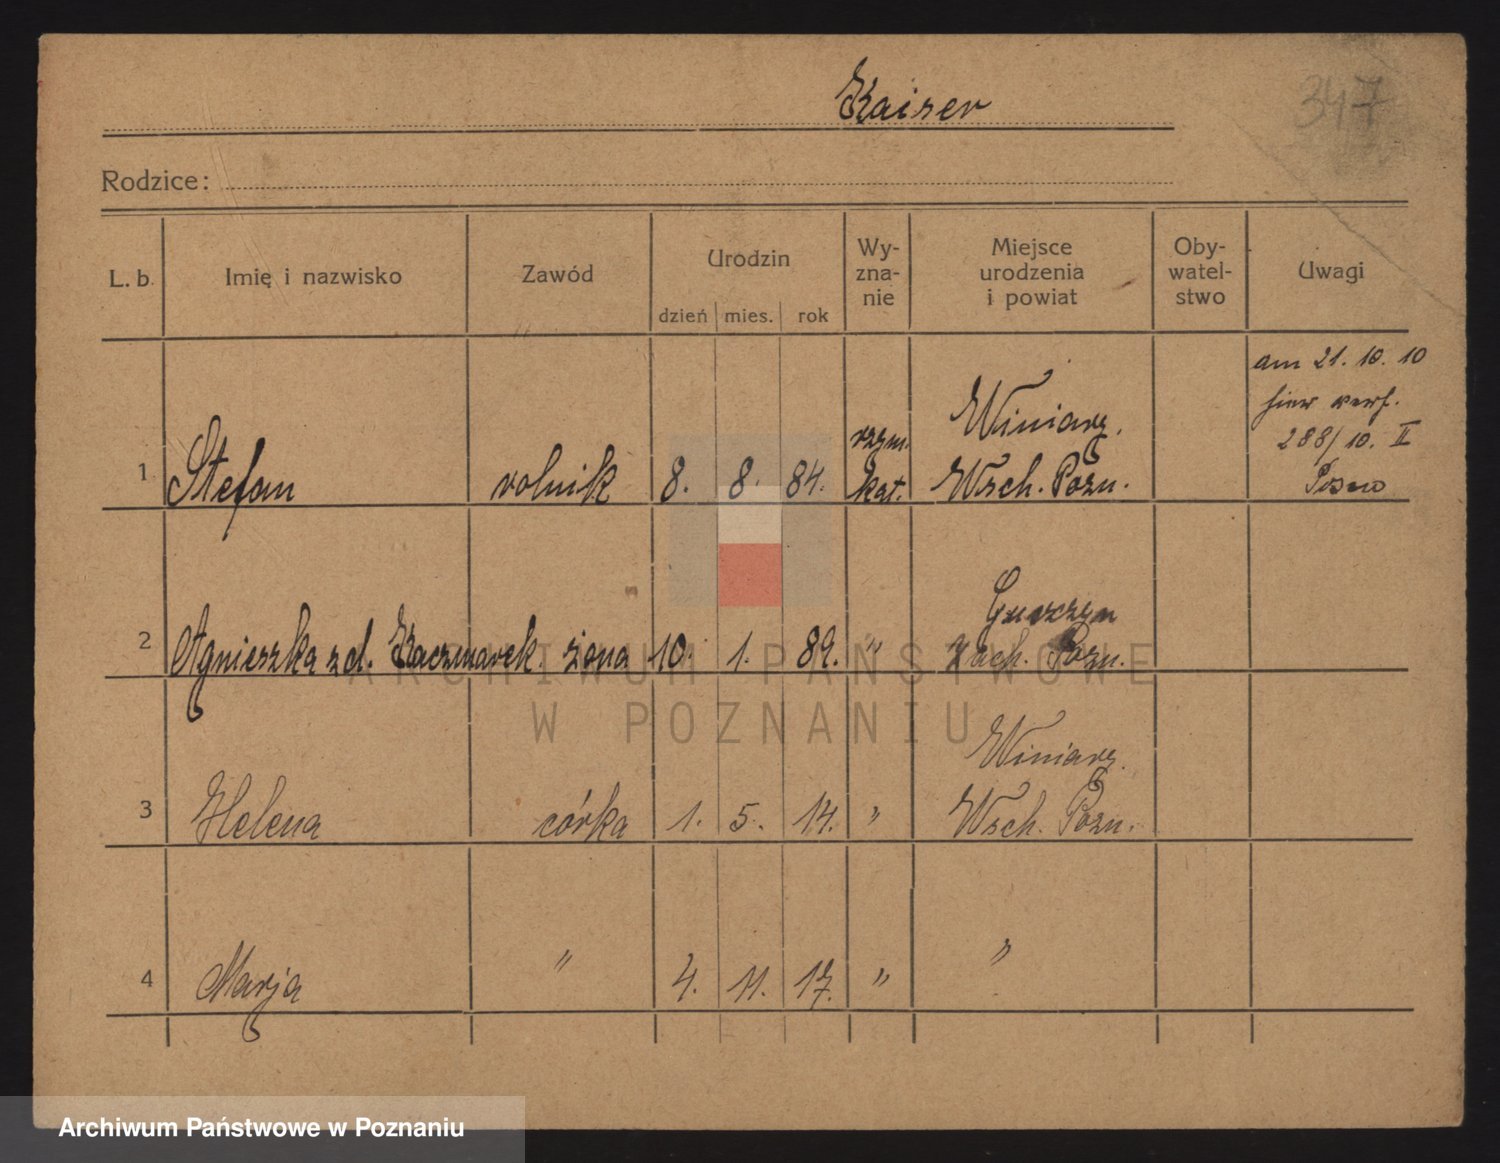 Kaiser
347
Rodzice:
L. b. Imię i nazwisko Zawód Urodzin dzień mies. rok Wy-zna-nie Miejsce urodzenia i powiat Oby-watel-stwo Uwagi
1 Stefan rolnik 8. 8. 84. rzym. kat. Winiary. Wsch. Pozn. am 21. 10. 10 hier verh. 288/10. II Posen
2 Agnieszka z d. Kaczmarek. żona 10. 1. 89. " Gurczyn Zach. Pozn.
3 Helena córka 1. 5. 14. " Winiary. Wsch. Pozn.
4 Marja " 4. 11. 17. " "
ARCHIWUM PAŃSTWOWE
W POZNANIU
Archiwum Państwowe w Poznaniu